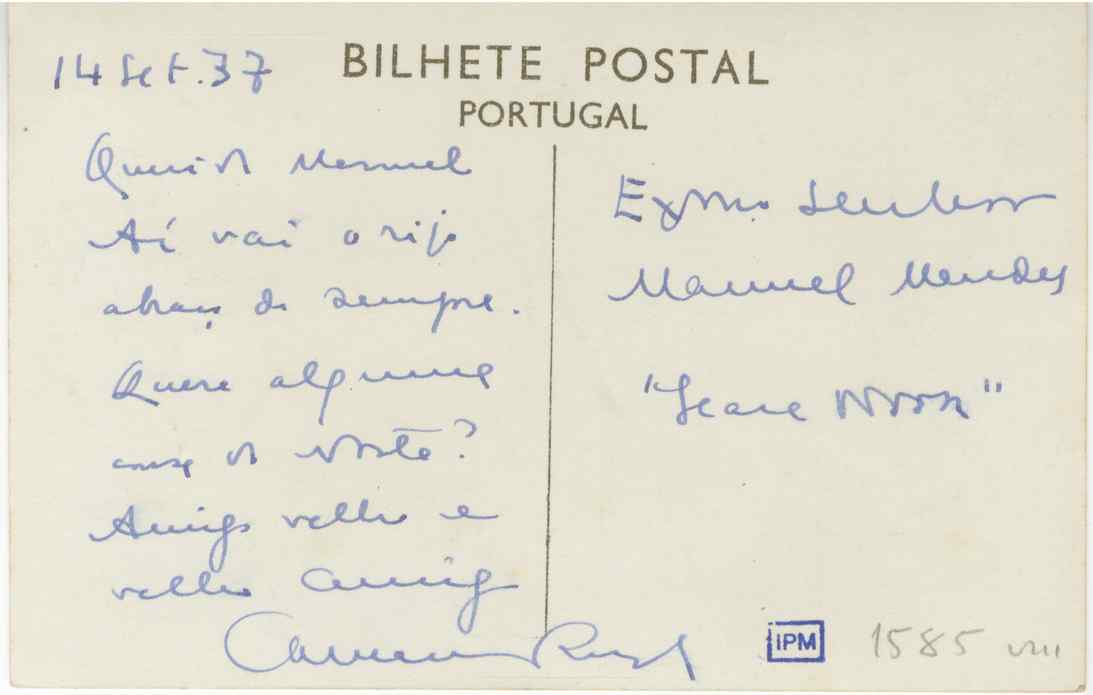 14 Set. 37
BILHETE POSTAL
PORTUGAL
Querido Manuel
Aí vai o rijo
abraço de sempre.
Quere alguma
cousa do Norte?
Amigo velho e
velho amigo
Exmo Senhor
Manuel Mendes
"Seara Nova"
IPM
1585 VIII